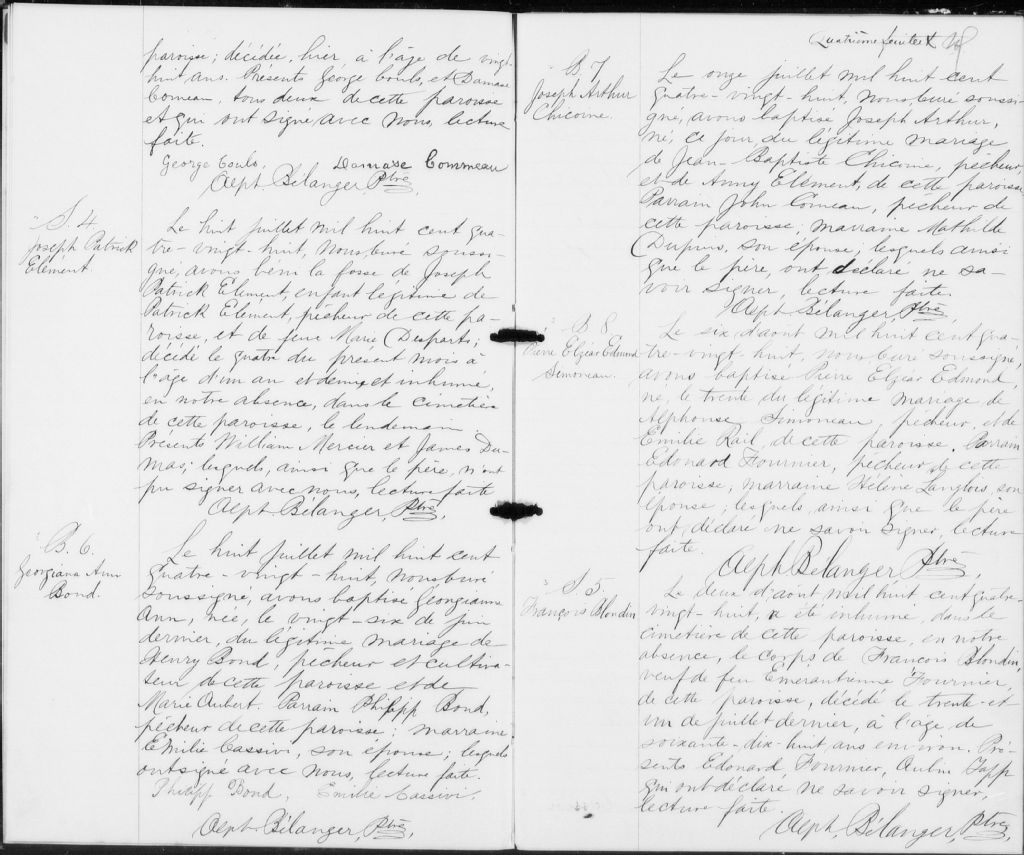 paroisse; décédée, hier, à l'âge de vingt-
huit ans. Présents George Coulo, et Damase
Comeau, tous deux de cette paroisse
et qui ont signé avec nous, lecture
faite.
George Coulo. Damase Commeau
Alph. Bélanger, Ptre,
S. 4
Joseph Patrick
Element
Le huit juillet mil huit cent qua-
tre-vingt-huit, nous curé soussi-
gné, avons béni la fosse de Joseph
Patrick Element, enfant légitime de
Patrick Element, pêcheur de cette pa-
roisse, et de feue Marie Desparts;
décédé le quatre du présent mois à
l'âge d'un an et demi, et inhumé,
en notre absence, dans le cimetière
de cette paroisse, le lendemain.
Présents William Mercier et James Du-
mas; lesquels, ainsi que le père, n'ont
pu signer avec nous, lecture faite
Alph. Bélanger, Ptre,
B. 6.
Georgiana Ann
Bond.
Le huit juillet mil huit cent
quatre-vingt-huit, nous curé
soussigné, avons baptisé Géorgianna
Ann, née, le vingt-six de juin
dernier, du légitime mariage de
Henry Bond, pêcheur et cultiva-
teur de cette paroisse et de
Marie Aubert. Parrain Philipp Bond,
pêcheur de cette paroisse; marraine
Emilie Cassivi, son épouse; lesquels
ont signé avec nous, lecture faite.
Philipp Bond, Emilie Cassivi,
Alph. Bélanger, Ptre,
Quatrième feuillet
B. 7
Joseph Arthur
Chicoine.
Le onze juillet mil huit cent
quatre-vingt-huit, nous curé soussi-
gné, avons baptisé Joseph Arthur,
né, ce jour, du légitime mariage
de Jean-Baptiste Chicoine, pêcheur,
et de Anny Element, de cette paroisse
Parrain John Comeau, pêcheur de
cette paroisse; marraine Mathilde
Dupuis, son épouse; lesquels ainsi
que le père, ont déclaré ne sa-
voir signer, lecture faite.
Alph. Bélanger, Ptre,
B 8.
Pierre Elzéar Edmond
Simoneau.
Le six d'août mil huit cent qua-
tre-vingt-huit, nous curé soussigné,
avons baptisé Pierre Elzéar Edmond,
né, le trente du légitime mariage de
Alphonse Simoneau, pêcheur, et de
Emilie Rail, de cette paroisse. Parrain
Edouard Fournier, pêcheur de cette
paroisse; marraine Hélène Langlois, son
épouse; lesquels ainsi que le père
ont déclaré ne savoir signer, lecture
faite.
Alph. Bélanger Ptre,
S. 5.
François Blondin
Le deux d'août mil huit cent quatre-
vingt-huit, a été inhumé, dans le
cimetière de cette paroisse, en notre
absence, le corps de François Blondin,
veuf de feu Emérantienne Fournier,
de cette paroisse, décédé le trente-et
un de juillet dernier, à l'âge de
soixante-dix-huit ans environ. Pré-
sents Edouard Fournier, Aubin Tapp
qui ont déclaré ne savoir signer,
lecture faite.
Alph. Bélanger, Ptre,